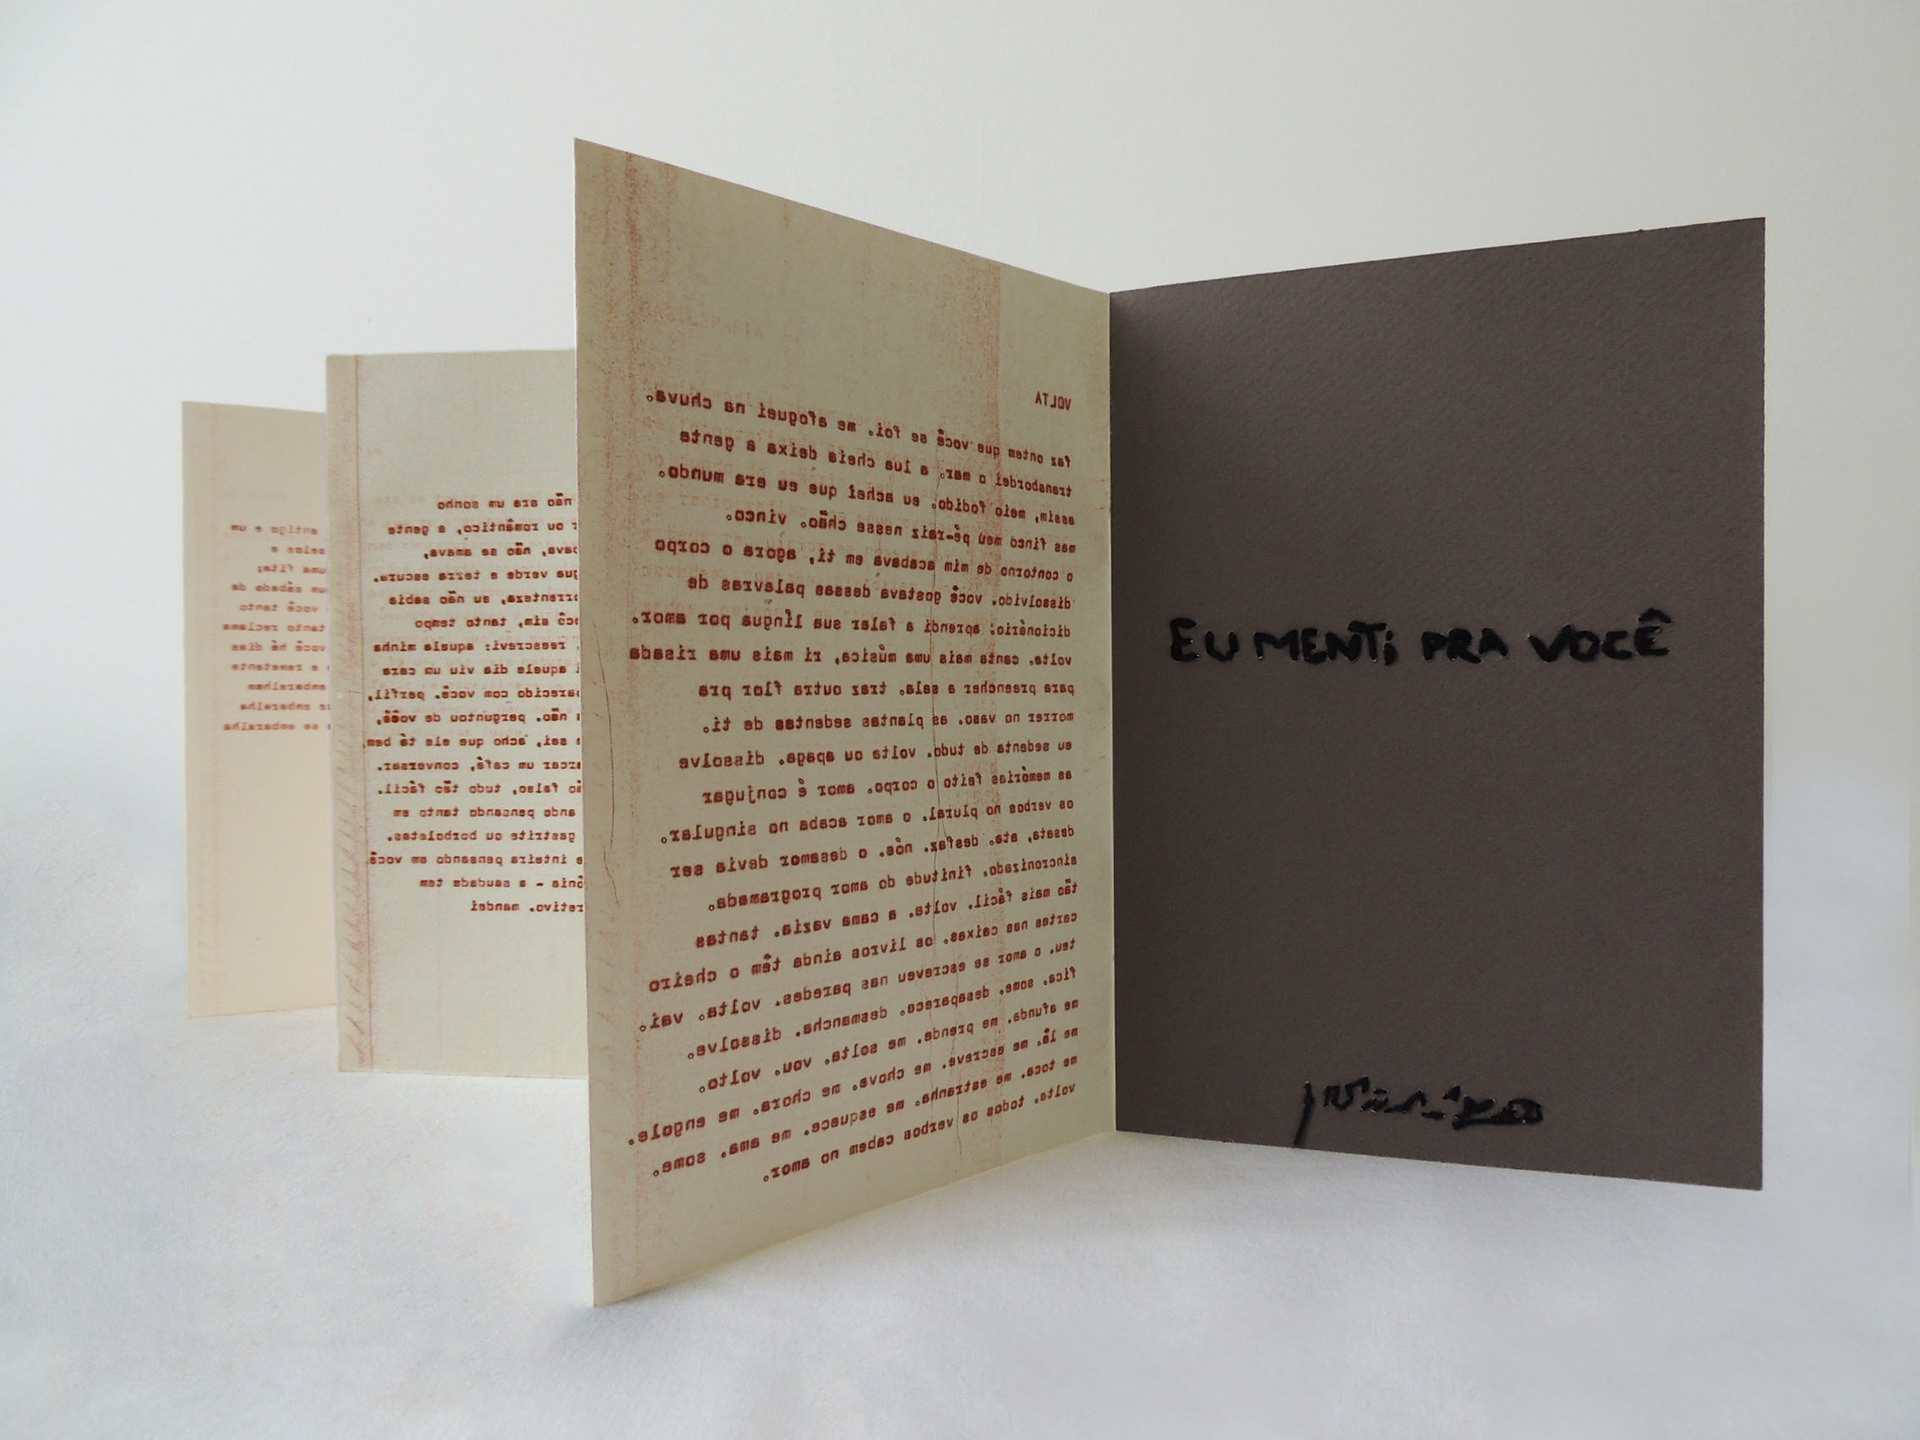 antigo e um
selos e
uma fita;
um sábado de
você tanto
tanto reclama
você há dias
e remetente
embaralham
se embaralha
se embaralha
não era um sonho
ou romântico, a gente
não se amava,
verde e terra escura.
eu não sabia
sim, tanto tempo
reescrevi: aquela minha
aquele dia viu um cara
parecido com você. perfil,
não. perguntou de você,
sei, acho que ele tá bem,
marcar um café, conversar.
falso, tudo tão fácil.
ando pensando tanto em
gastrite ou borboletas.
inteira pensando em você
- a saudade tem
mandei
VOLTA
faz ontem que você se foi. me afoguei na chuva.
transbordei o mar. a lua cheia deixa a gente
assim, meio fodido. eu achei que eu era mundo.
mas finco meu pé-raiz nesse chão. vinco.
o contorno de mim acabava em ti, agora o corpo
dissolvido. você gostava dessas palavras de
dicionário; aprendi a falar sua língua por amor.
volta. canta mais uma música, ri mais uma risada
para preencher a sala. traz outra flor pra
morrer no vaso. as plantas sedentas de ti.
eu sedenta de tudo. volta ou apaga. dissolve
as memórias feito o corpo. amor é conjugar
os verbos no plural. o amor acaba no singular.
desata, ata. desfaz. nós. o desamor devia ser
sincronizado. finitude do amor programada.
tão mais fácil. volta. a cama vazia. tantas
cartas nas caixas. os livros ainda têm o cheiro
teu. o amor se escreveu nas paredes. volta. vai.
fica. some. desaparece. desmancha. dissolve.
me afunda. me prende. me solta. vou. volto.
me lê. me escreve. me chove. me chora. me engole.
me toca. me estranha. me esquece. me ama. some.
volta. todos os verbos cabem no amor.
EU MENTi PRA VOCÊ